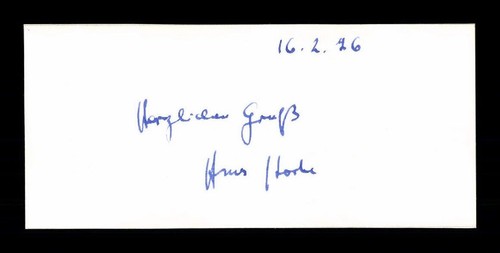 16.2.76
Herzlichen Gruß
Hans